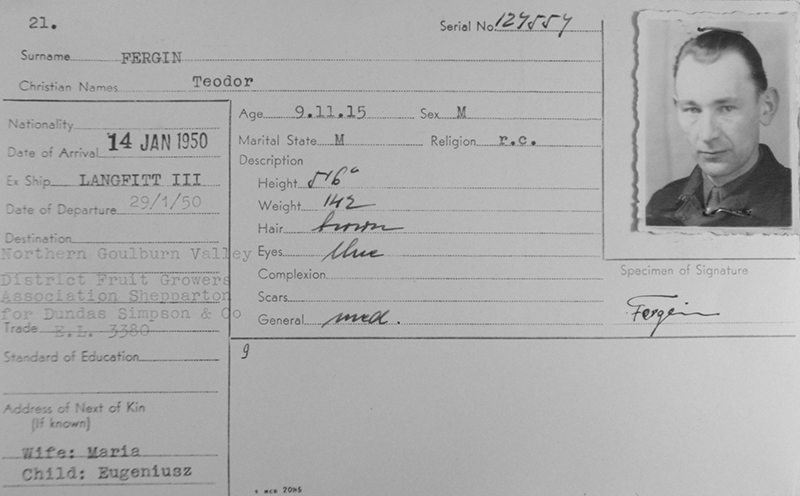 21.
Serial No. 127557
Surname FERGIN
Christian Names Teodor
Nationality
Date of Arrival 14 JAN 1950
Ex Ship LANGFITT III
Date of Departure 29/1/50
Destination
Northern Goulburn Valley
District Fruit Growers
Association Shepparton
for Dundas Simpson & Co
Trade E.L. 3380
Standard of Education
Address of Next of Kin
(If known)
Wife: Maria
Child: Eugeniusz
Age 9.11.15 Sex M
Marital State M Religion r.c.
Description
Height 5'6"
Weight 142
Hair brown
Eyes blue
Complexion
Scars
General med.
9
Specimen of Signature
Fergin